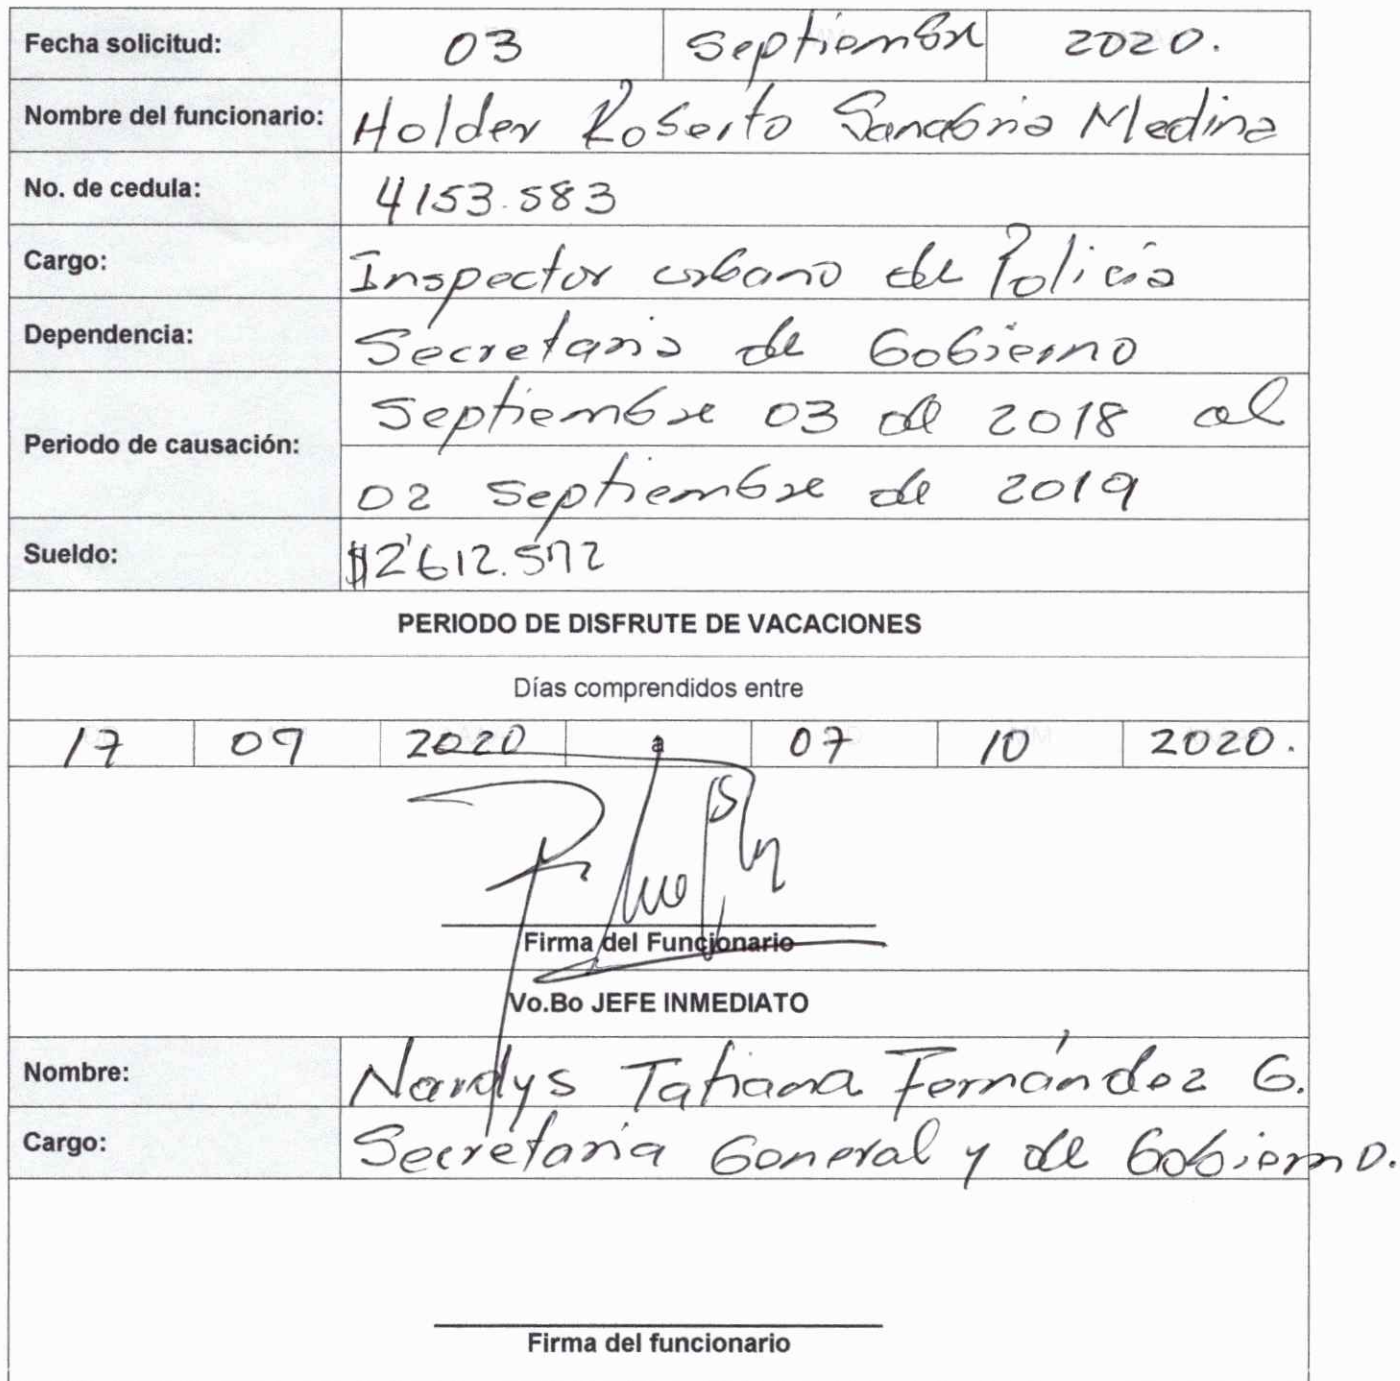 Fecha solicitud: 03 Septiembre 2020.
Nombre del funcionario: Holder Roberto Sanabria Medina
No. de cedula: 4153.583
Cargo: Inspector urbano de Policía
Dependencia: Secretaria de Gobierno
Septiembre 03 de 2018 al
Periodo de causación:
02 Septiembre de 2019
Sueldo: $2'612.572
PERIODO DE DISFRUTE DE VACACIONES
Días comprendidos entre
17 09 2020 a 07 10 2020.
Firma del Funcionario
Vo.Bo JEFE INMEDIATO
Nombre: Nardys Tatiana Fernández G.
Cargo: Secretaria General y de Gobierno.
Firma del funcionario